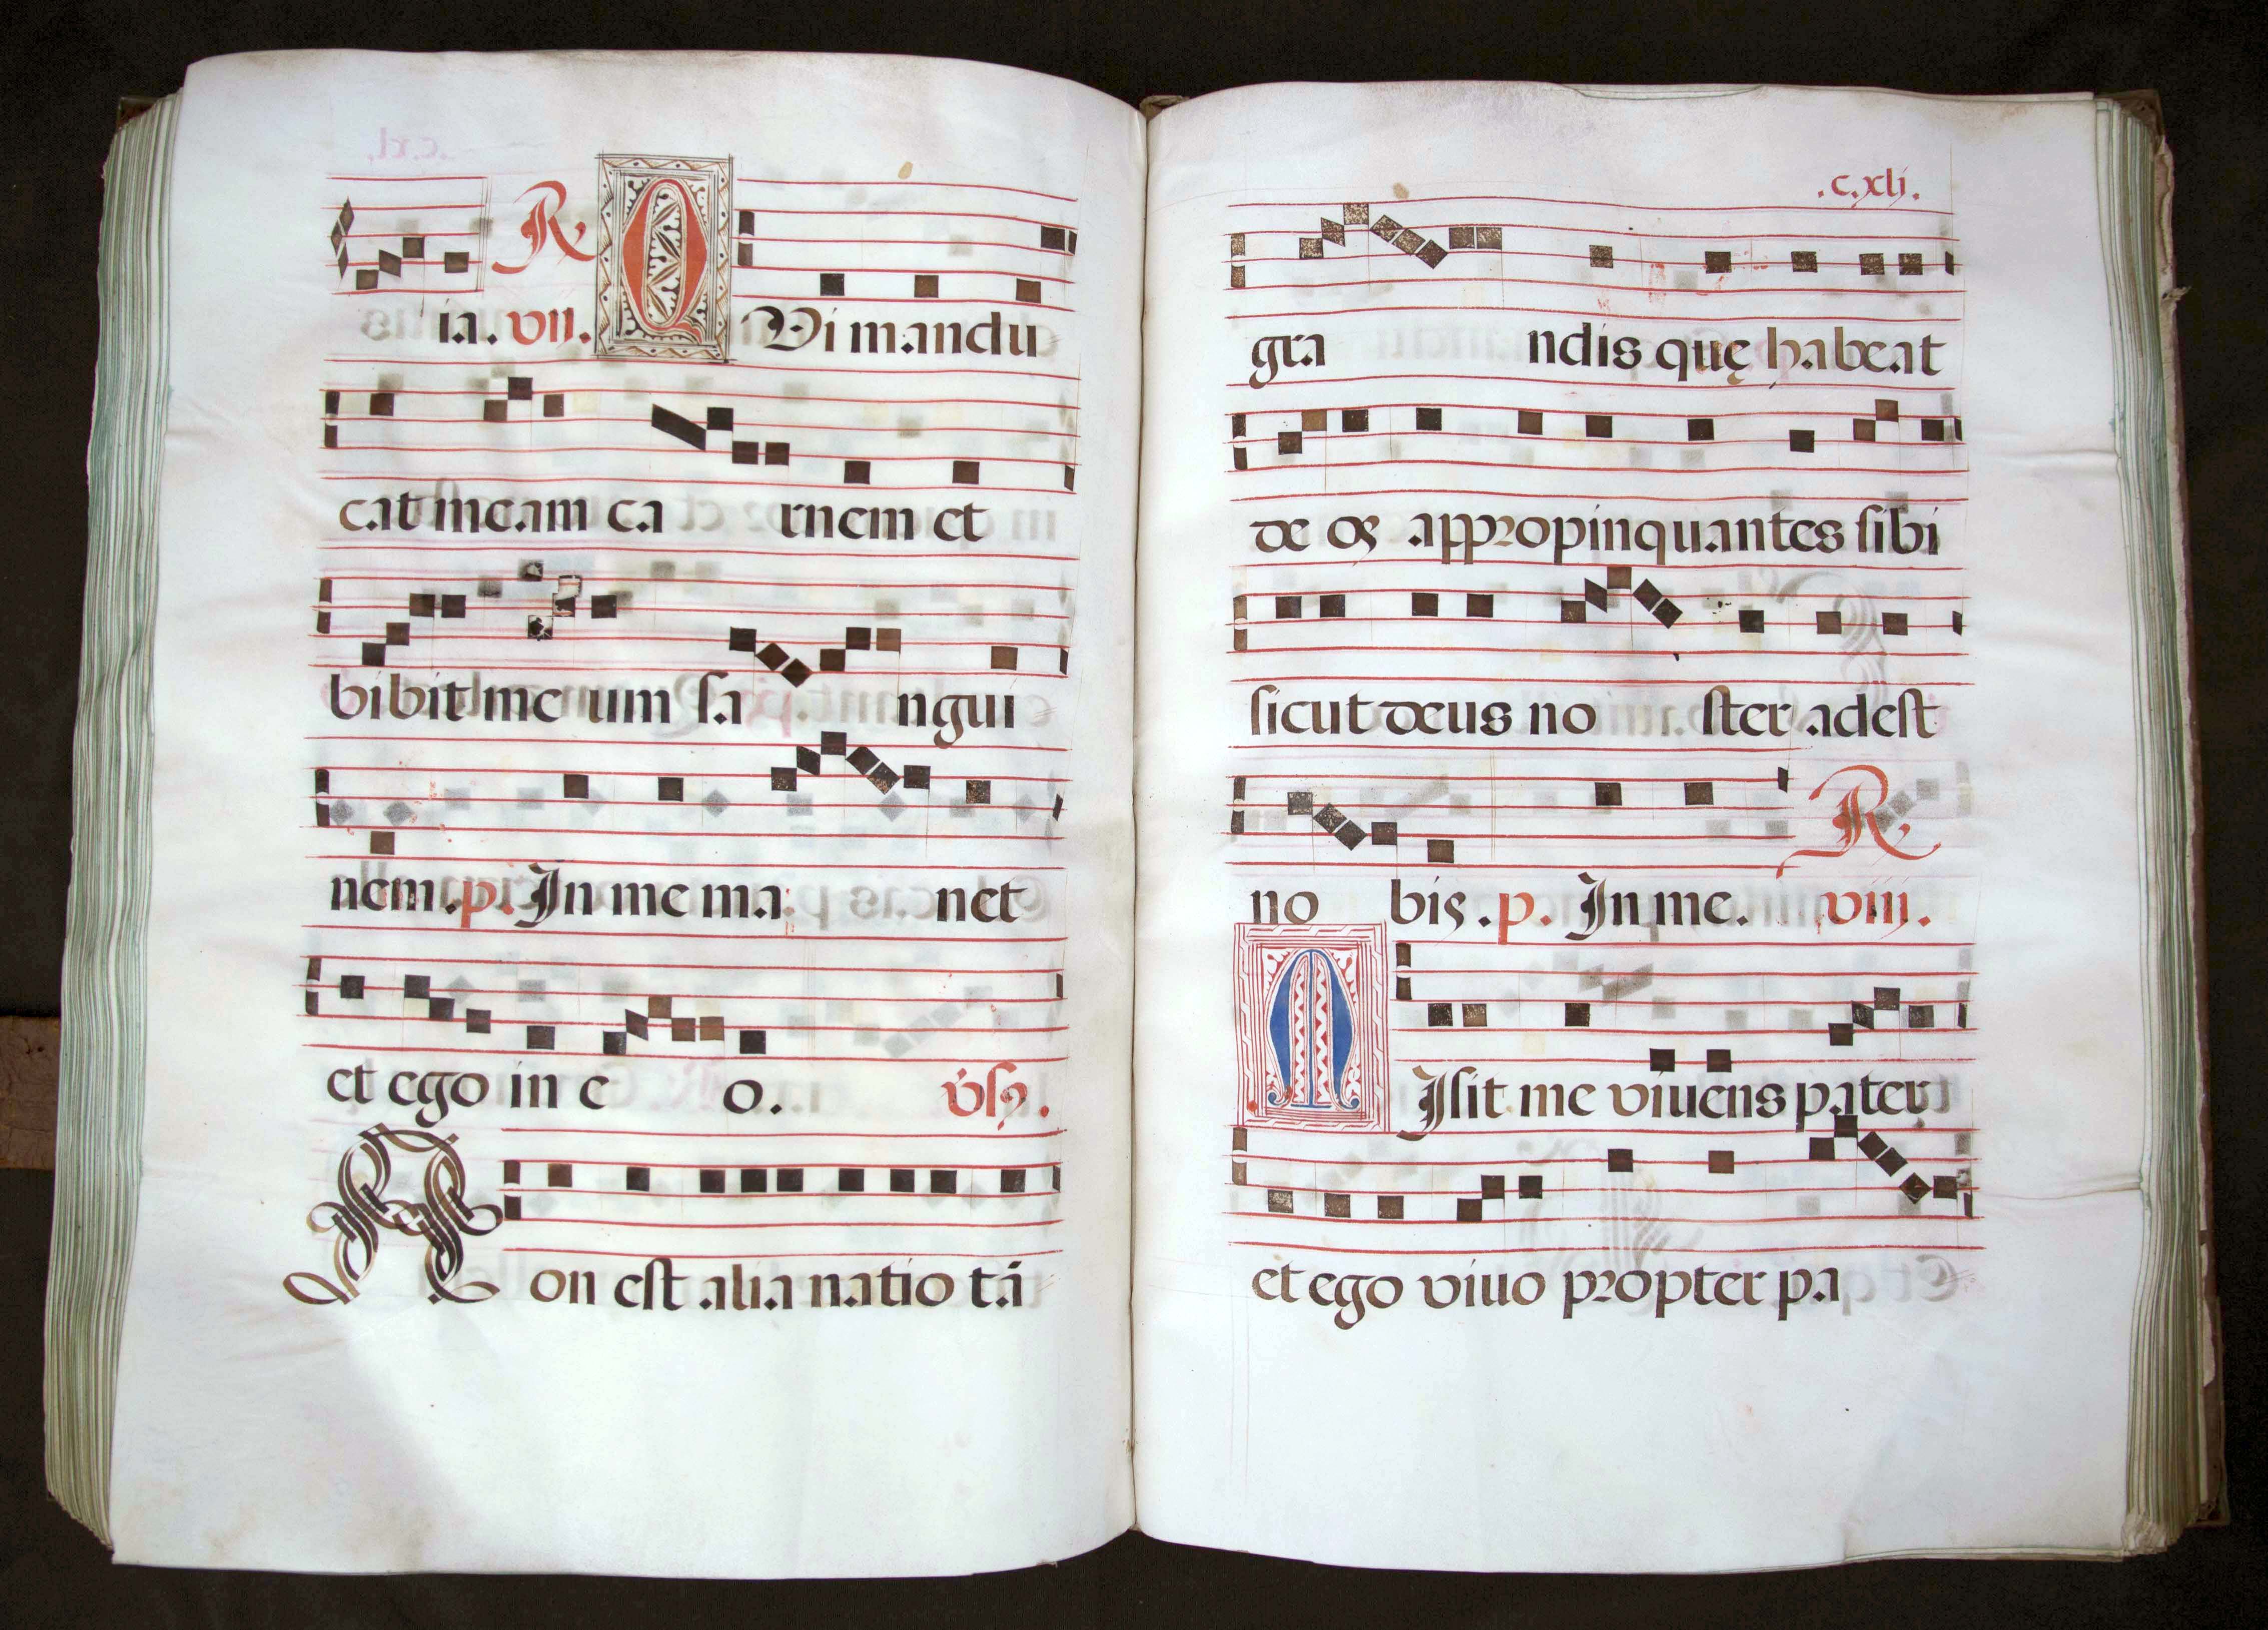 ia. vii. R Qvi mandu
cat meam ca rnem et
bibit me um sa ngui
nem. p. In me ma net
et ego in e o. vs.
Non est alia natio tā
.c.xlj.
gra ndis quę habeat
de os appropinquantes sibi
sicut deus no ster adest
R
no bis. p. In me. viij.
Misit me viuens pater
et ego viuo propter pa